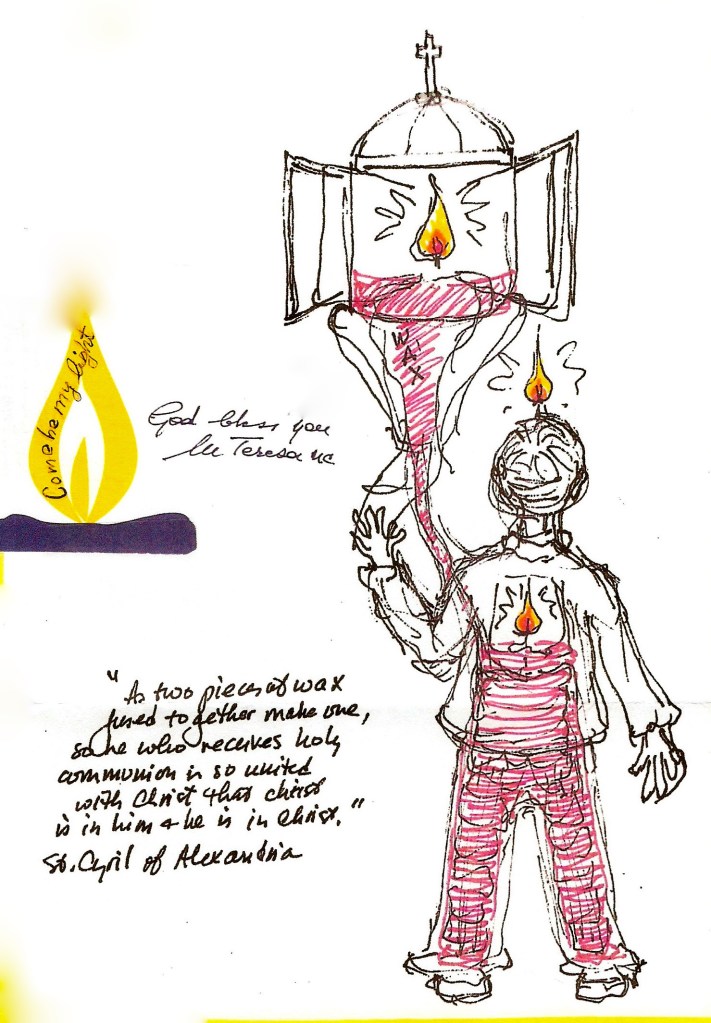 Come be my light
God bless you
M Teresa mc
WAX
"As two pieces of wax
fused together make one,
so he who receives holy
communion is so united
with Christ that christ
is in him & he is in Christ."
St. Cyril of Alexandria